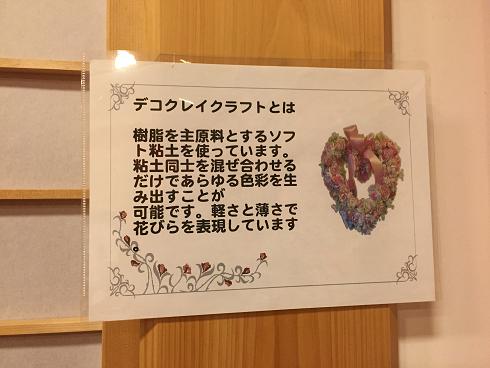 デコクレイクラフトとは
樹脂を主原料とするソフ
ト粘土を使っています。
粘土同士を混ぜ合わせる
だけであらゆる色彩を生
み出すことが
可能です。軽さと薄さで
花びらを表現しています
。